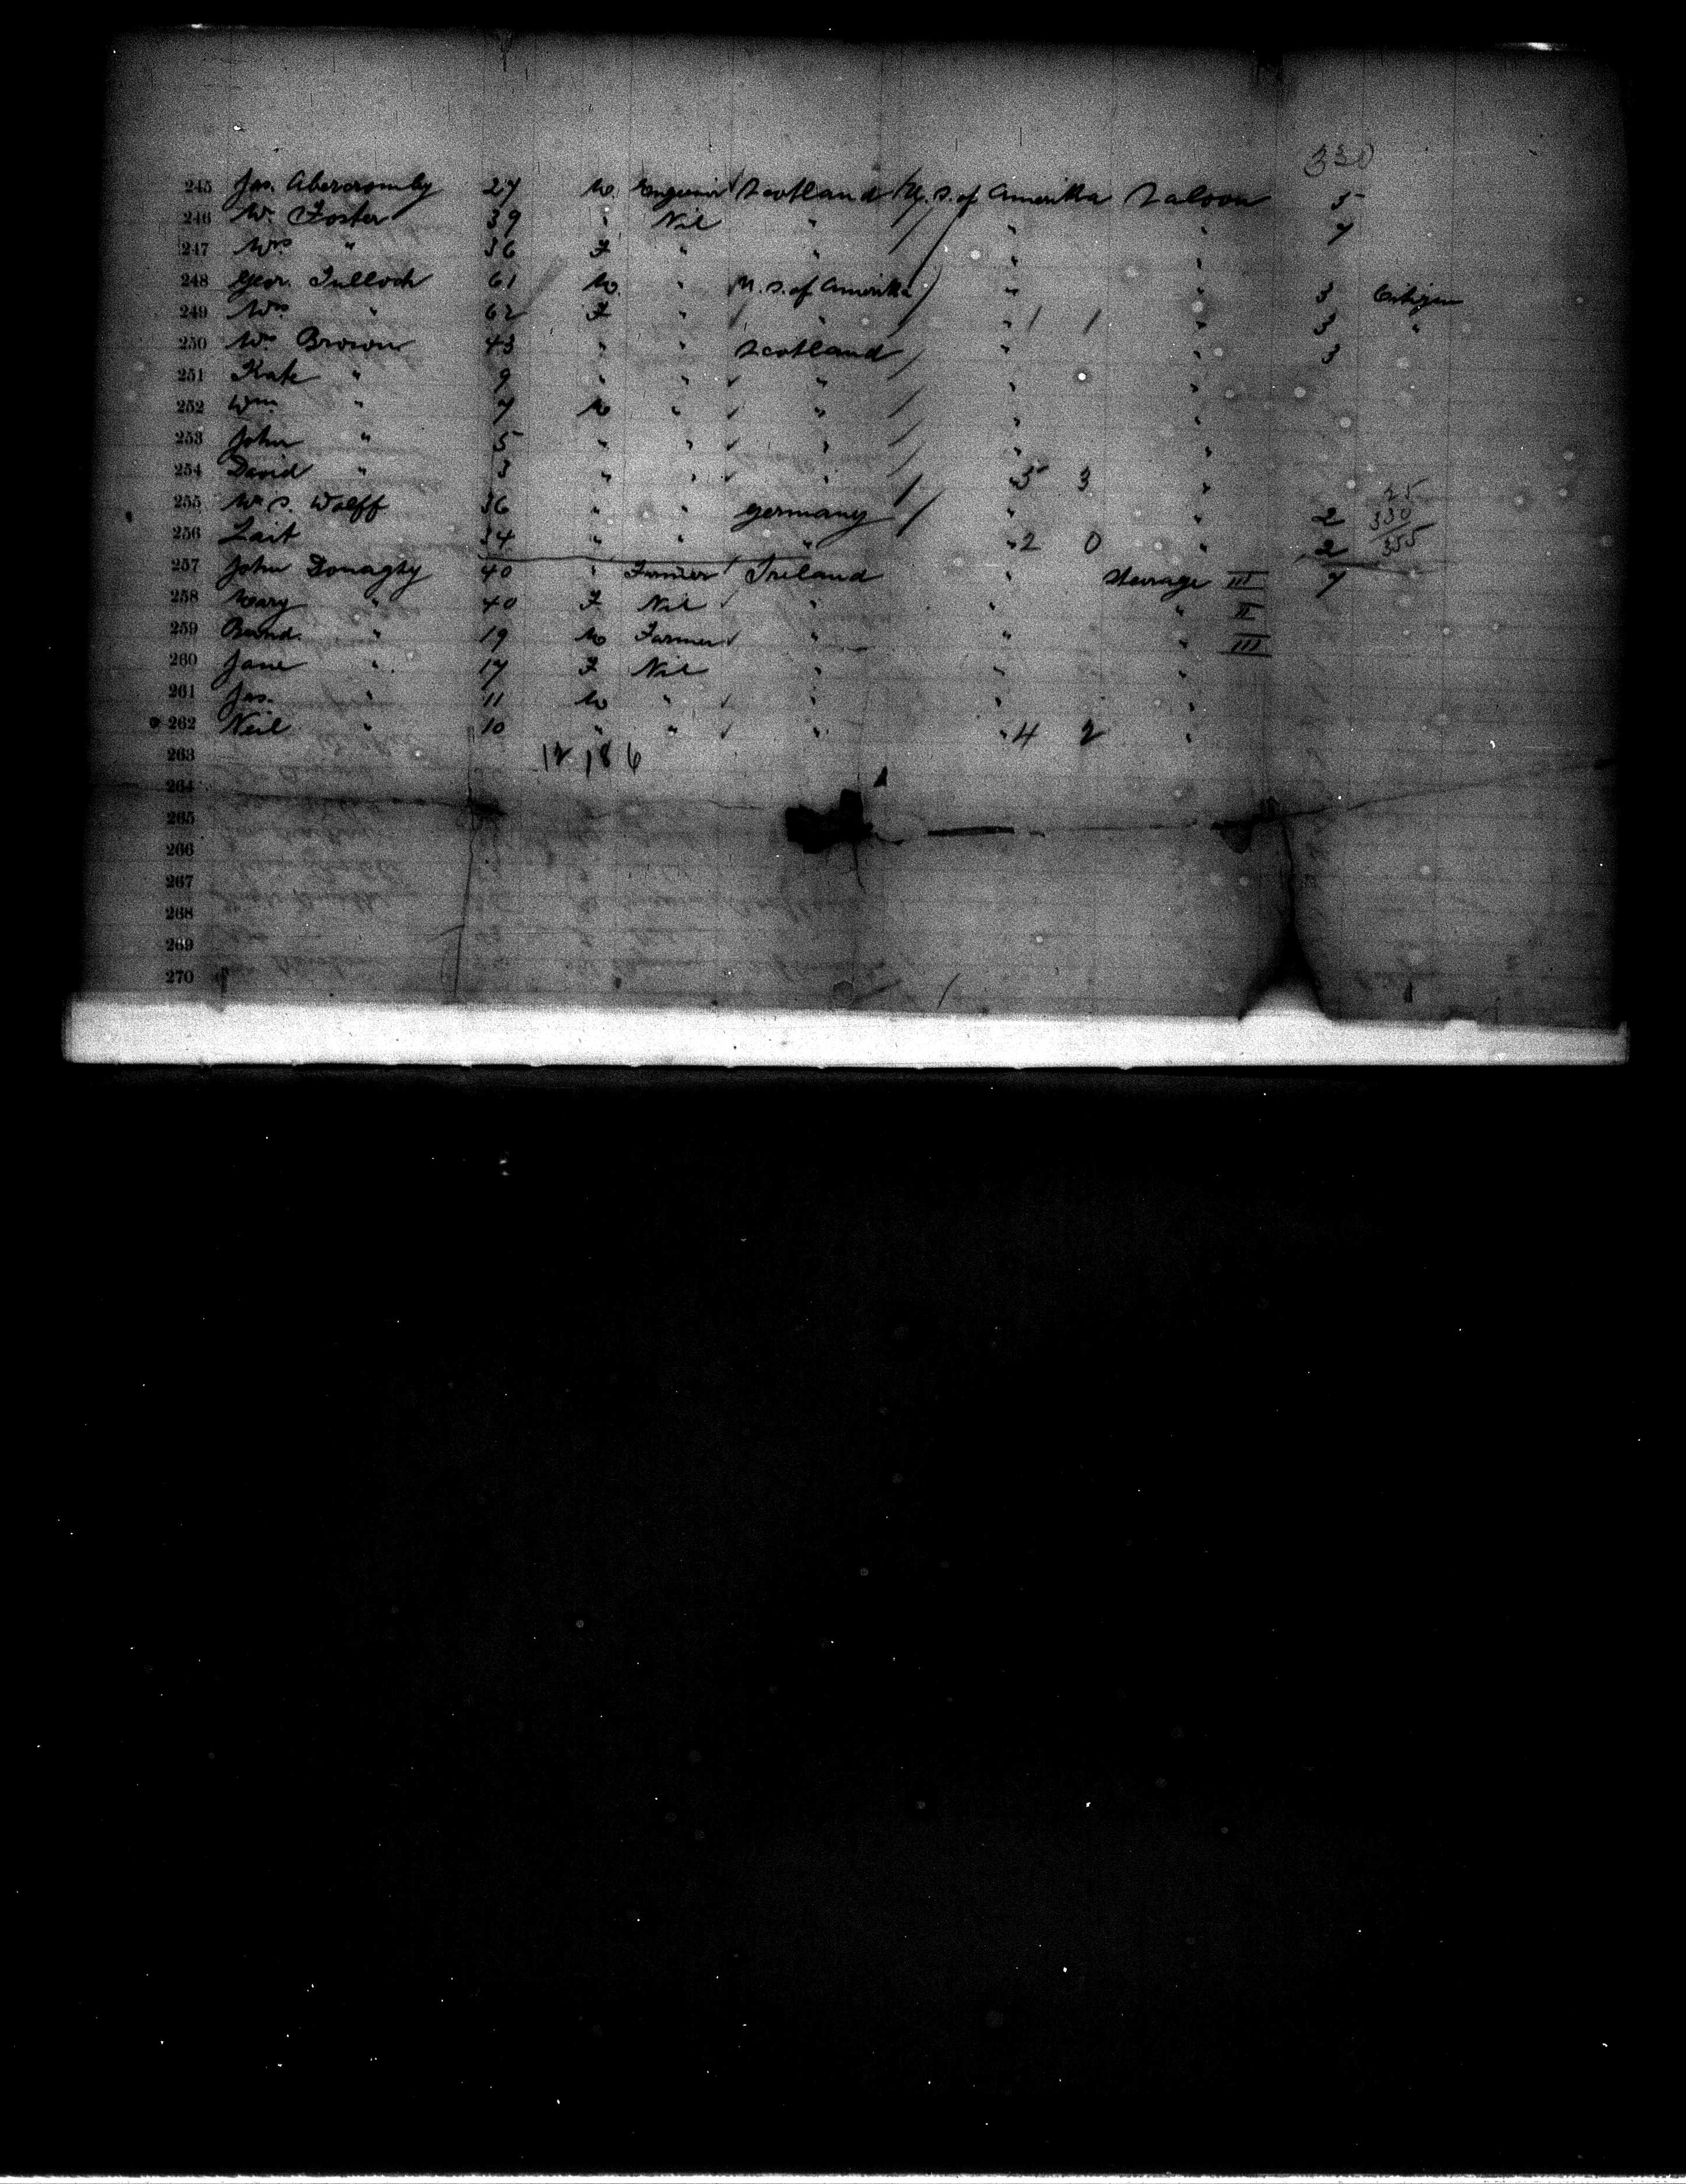 330
245 Jas. Abercromby 27 M. Engineer Scotland U. S. of Amerika Saloon 5
246 Wm. Foster 39 " Nil " " " 7
247 Mrs " 36 F " " " "
248 Geor. Tulloch 61 M. " U. S. of Amerika " " 3 Citizen
249 Mrs " 62 F " " " 1 1 " 3 "
250 Mrs Brown 43 " " Scotland " " 3
251 Kate " 9 " " " " "
252 Wm " 7 M " " " "
253 John " 5 " " " " "
254 David " 3 " " " " 5 3 "
255 Mr S. Wolff 36 " " Germany " " 2 25
330
256 Lait 34 " " " " 2 0 " 2 355
257 John Donaghy 40 " Farmer Ireland " Steerage III 7
258 Mary " 40 F Nil " " " II
259 Bernd. " 19 M Farmer " " " III
260 Jane " 17 F Nil " " "
261 Jas. " 11 M " " " "
262 Neil " 10 " " " " 4 2 "
263 12 18 6
264
265
266
267
268
269
270